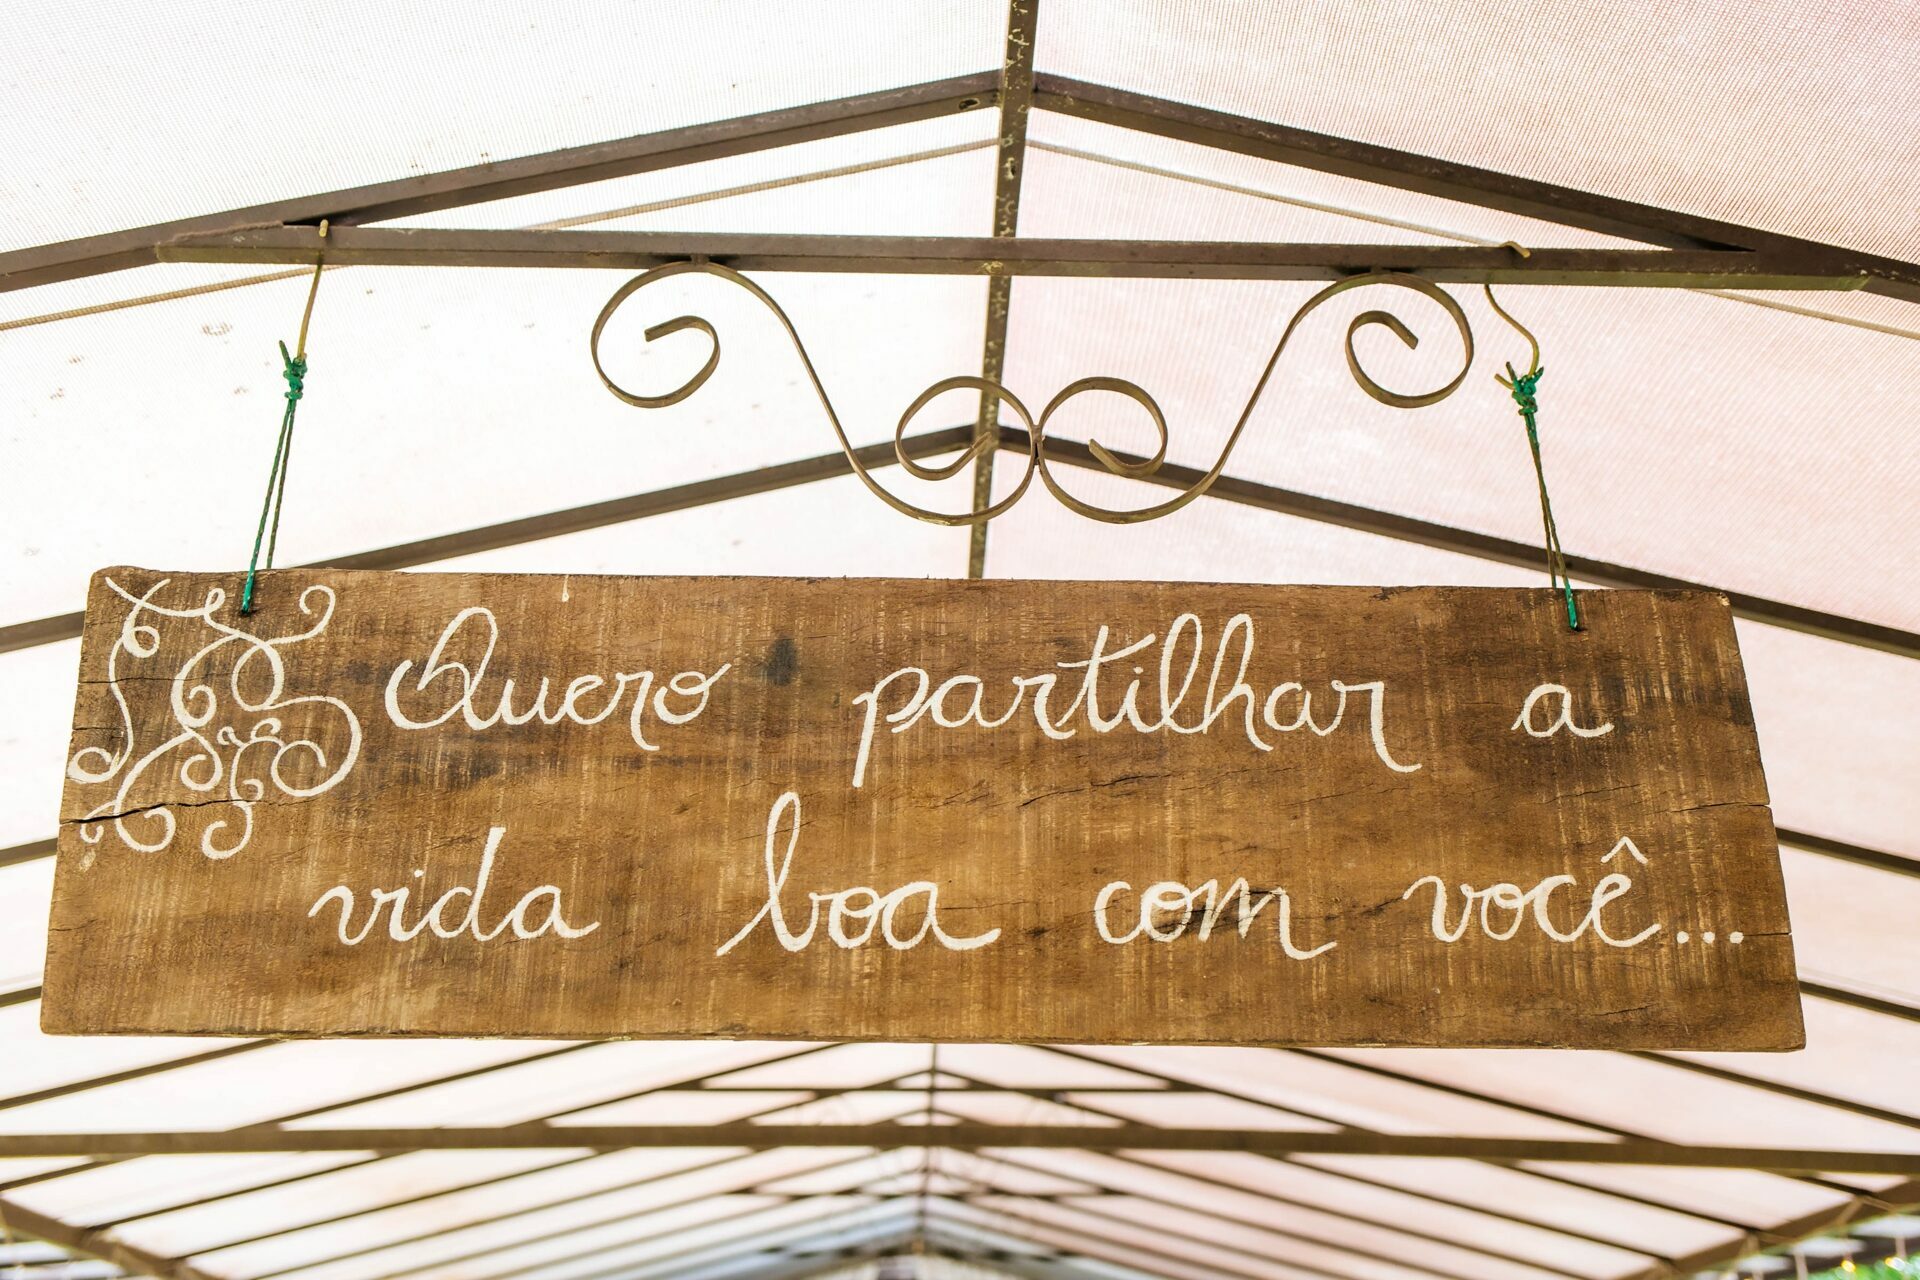 Quero partilhar a
vida boa com você...